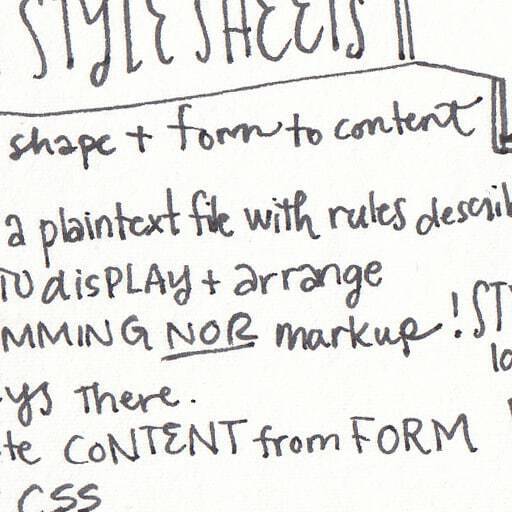 STYLE SHEETS
shape + form to content
a plaintext file with rules describ
TO disPLAY + arrange
MMING NOR markup! STY
lo
ys There.
te CONTENT from FORM
CSS